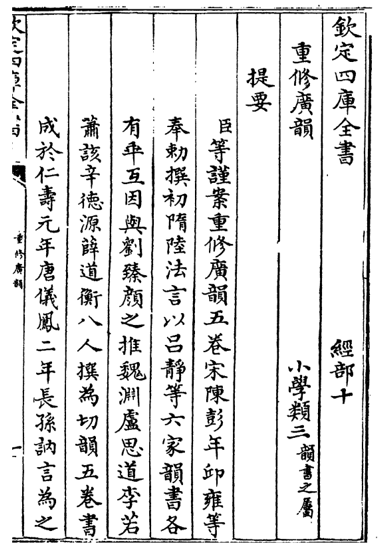 欽定四庫全書　經部十
重修廣韻　小學類三韻書之屬
提要
臣等謹案重修廣韻五卷宋陳彭年邱雍等
奉勅撰初隋陸法言以呂靜等六家韻書各
有乖互因與劉臻顔之推魏淵盧思道李若
蕭該辛德源薛道衡八人撰為切韻五卷書
成於仁壽元年唐儀鳳二年長孫訥言為之
欽定四庫全書
重修廣韻
一